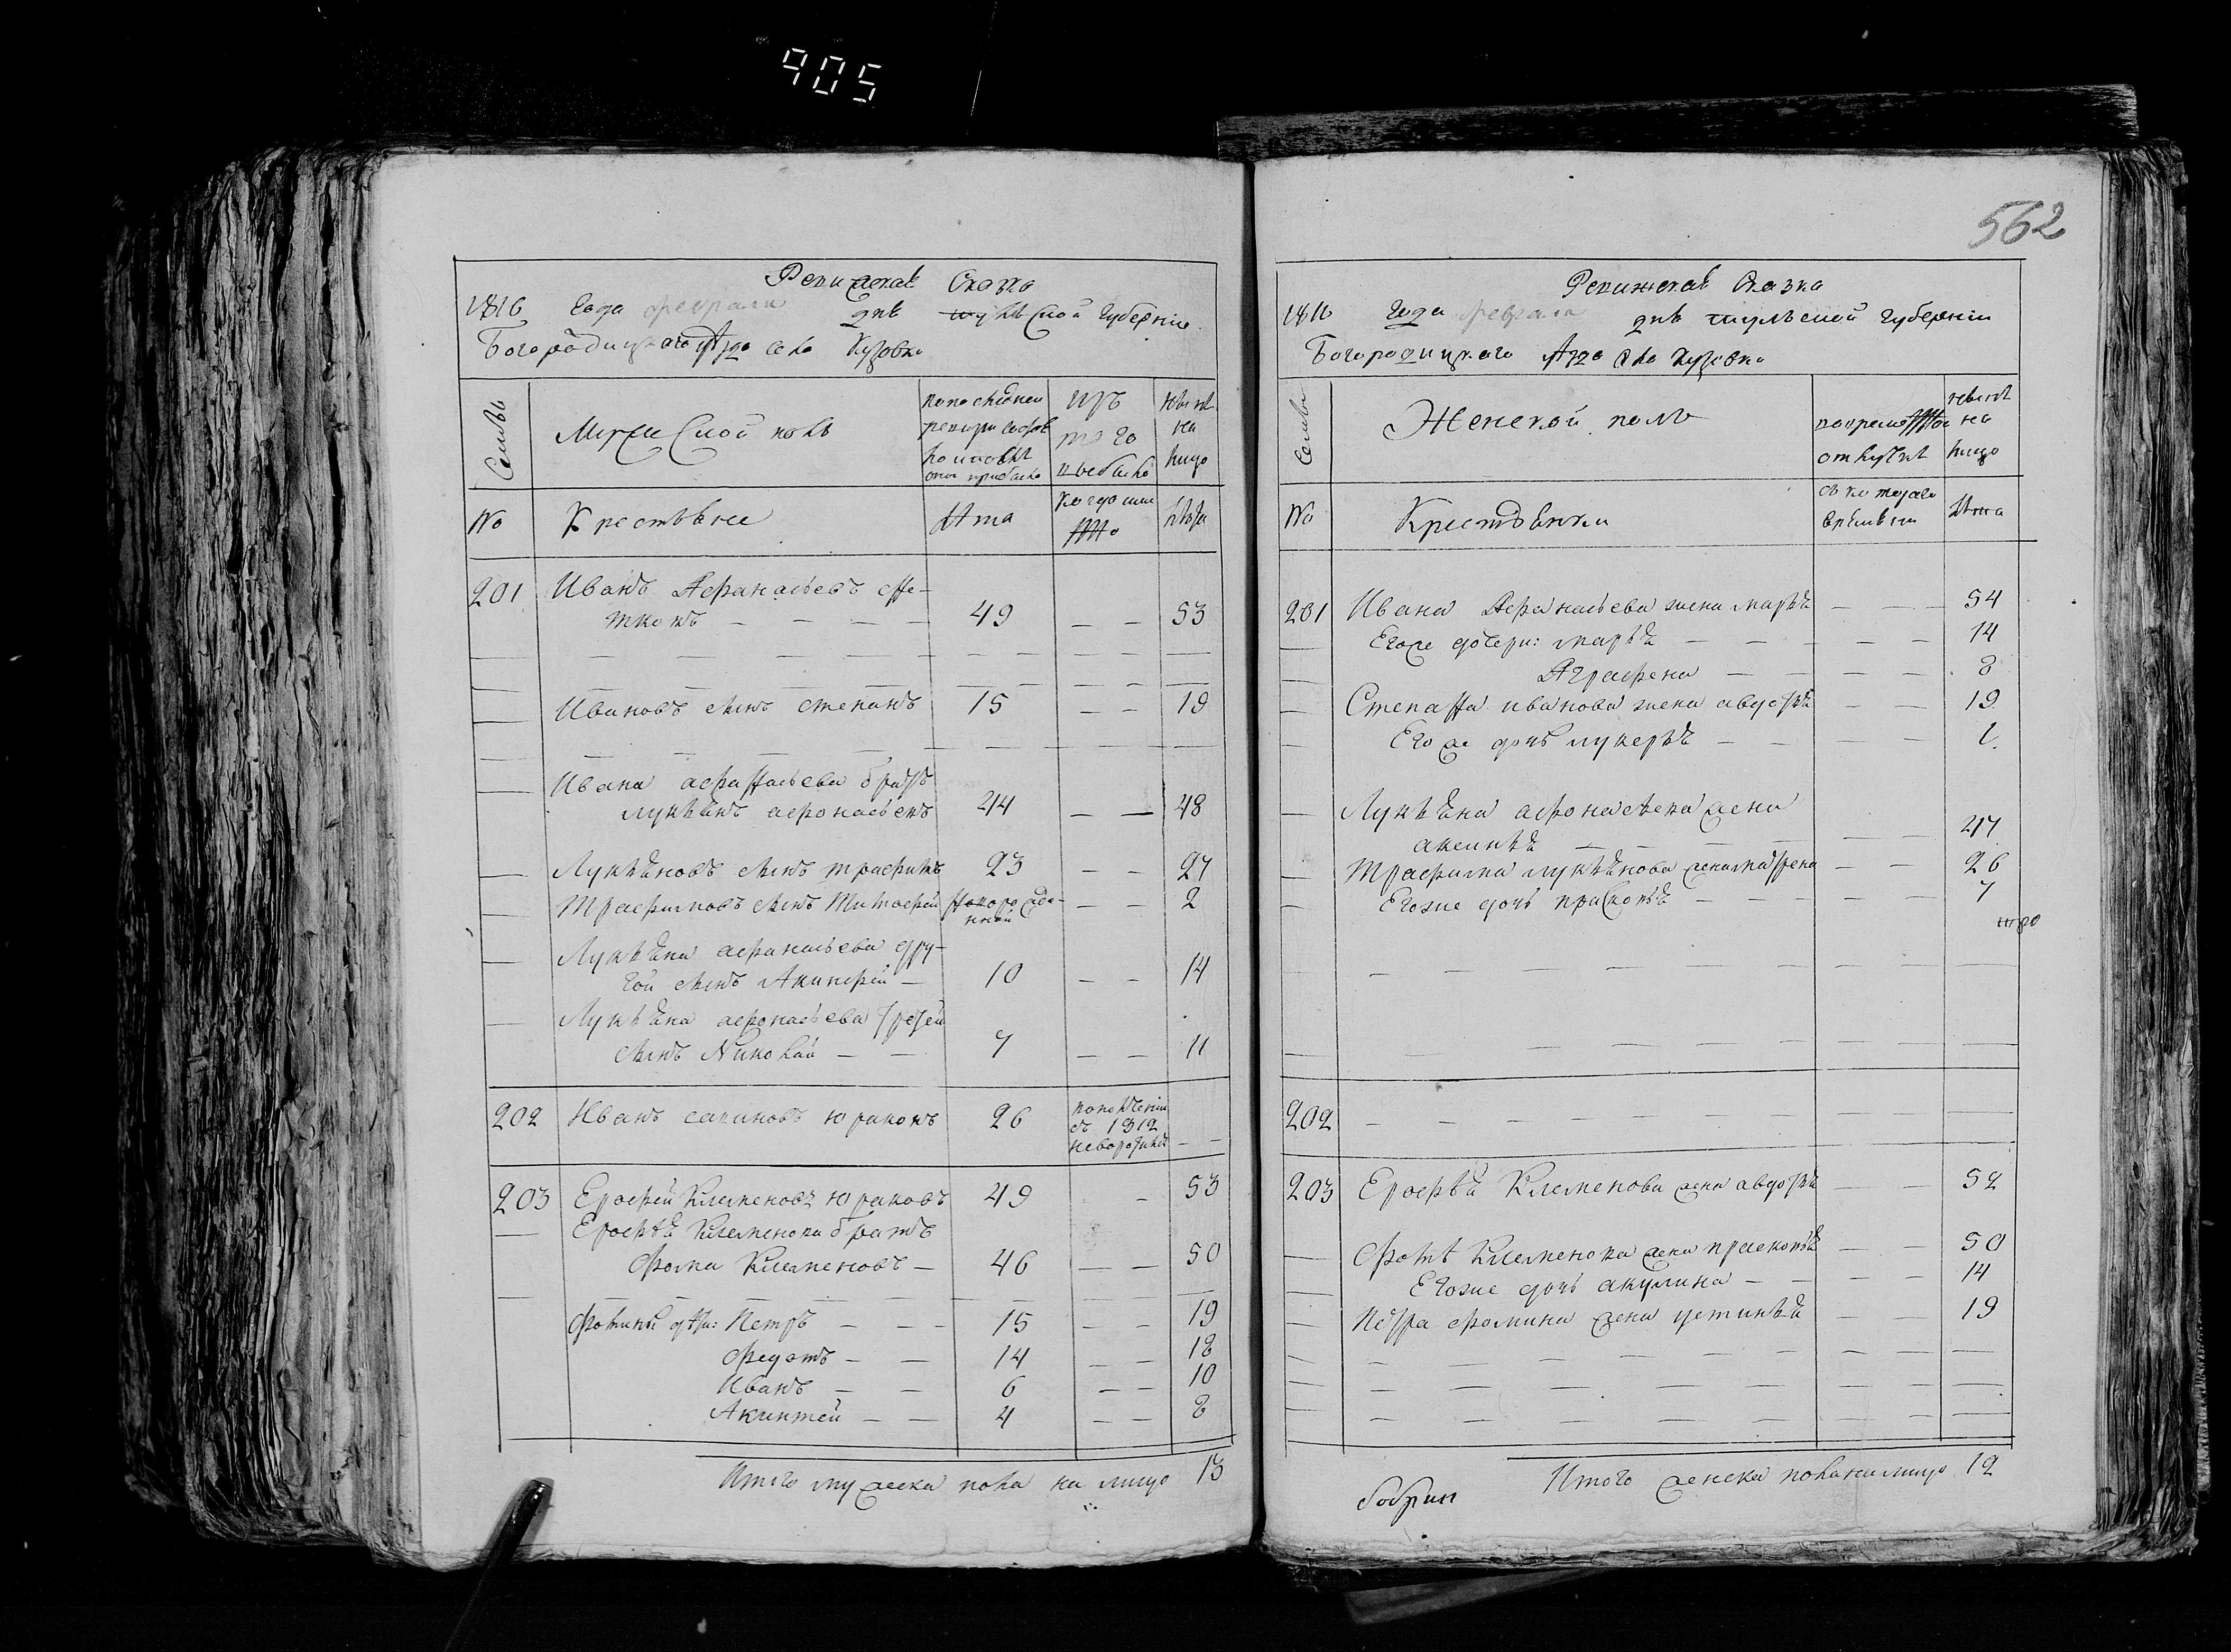 905
Ревижская Сказка
1816 года февраля дня тульской губернии
Богородицкаго уезда села Кузовка
Семьи
Мужеской полъ
по последней ревизии состояло и после оной прибыло
изъ того выбыло
ныне на лицо
№
Крестьяне
Лета
когда имянно
лета
201 Иванъ Афанасьевъ
49 — — 53
Ивановъ сынъ степанъ 15 — — 19
Ивана афанасьева братъ
лукьянъ афонасьевъ 44 — — 48
Лукьяновъ сынъ трафимъ 23 — — 27
Трафимовъ сынъ Тимофей новорожде- — — 2
нной
Лукьяна афанасьева дру-
гой сынъ Акинфей — 10 — — 14
Лукьяна афонасьева третей
сынъ Николай — — 7 — — 11
202 Иванъ савиновъ юраковъ 26
въ 1812
203 Ерофей Клеменовъ юраковъ 49 — 53
Ерофея Клеменова братъ
Фома Клеменовъ — 46 — — 50
Фомины дети: Петръ — — — 15 — — 19
Федотъ — — 14 — — 18
Иванъ — — 6 — — 10
Акинтей — — 4 — — 8
Итого мужеска пола на лицо 13
562
Ревижская Сказка
1816 года февраля дня тульской губернии
Богородицкаго уезда села Кузовка
Семьи
Женской полъ
во временной отлучке
ныне на лицо
№
Крестьянки
съ котораго времени
Лета
201 Ивана Афанасьева жена марья — — 54
Егоже дочери: марья — — — — — 14
Аграфена — — — — 8
Степана иванова жена авдотья — — 19
Егоже дочь лукерья — — — 1
Лукьяна афонасьева жена
аксинья — — — 47
Трафима лукьянова жена матрена — — 26
Егоже дочь прасковья — — — — — 7
202
203 Ерофея Клеменова жена авдотья — — 52
Фоме Клеменова жена прасковья — — 50
Егоже дочь акулина — — — — 14
Петра фомина жена устинья — — 19
Итого женска пола на лицо 12